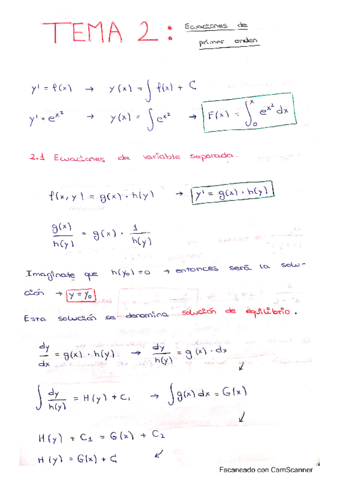 TEMA 2: Ecuaciones de primer orden
y' = f(x) → y(x) = ∫ f(x) + C
y' = e^{x²} → y(x) = ∫ e^{x²} → F(x) = ∫₀ˣ e^{x²} dx
2.1 Ecuaciones de variable separada.
f(x,y) = g(x) · h(y) → y' = g(x) · h(y)
g(x)/h(y) = g(x) · 1/h(y)
Imagínate que h(y₀) = 0 → entonces será la solu-
ción → y = y₀
Esta solución se denomina solución de equilibrio.
dy/dx = g(x) · h(y) → dy/h(y) = g(x) · dx
∫ dy/h(y) = H(y) + C₁ → ∫ g(x) dx = G(x)
H(y) + C₁ = G(x) + C₂
H(y) = G(x) + C
Escaneado con CamScanner